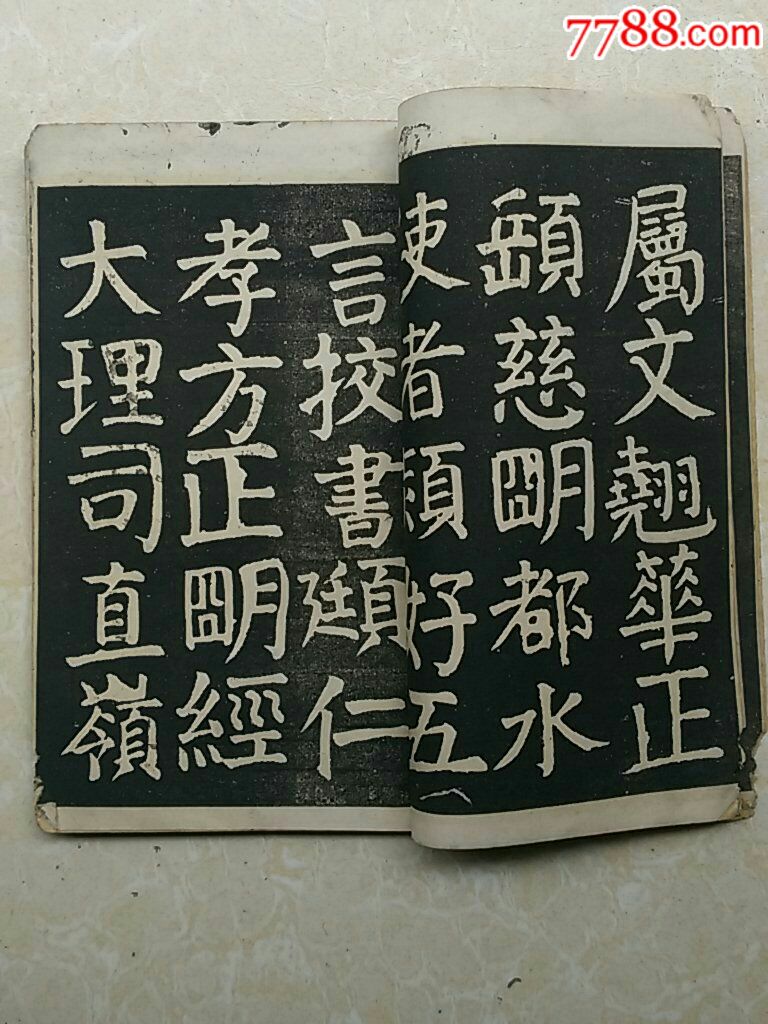 7788.com
屬文翹華正
頤慈朙都水
使者好五
言挍書頲仁
孝方正朙經
大理司直嶺